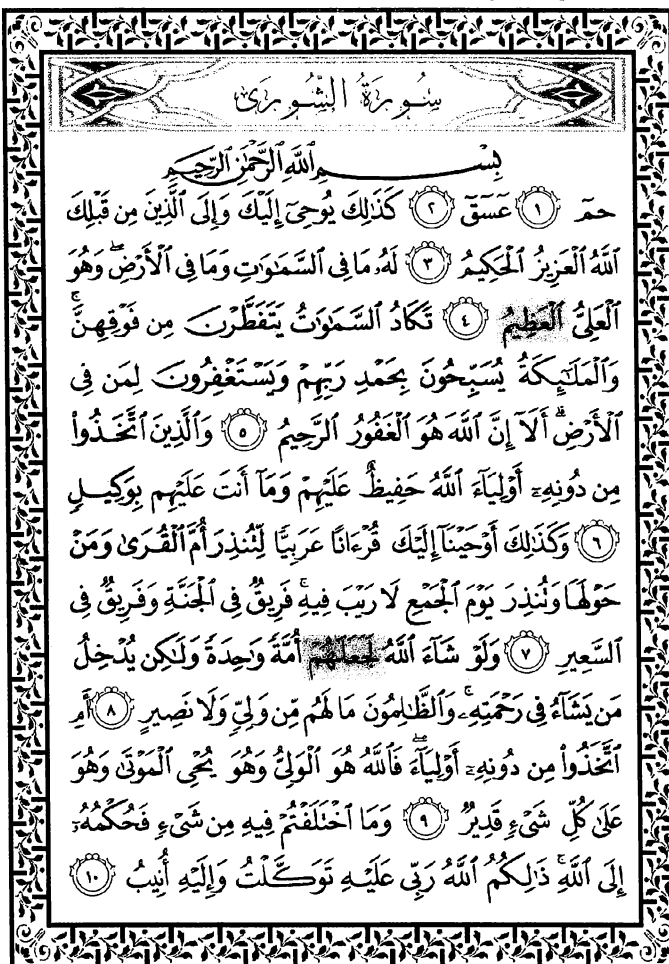 سُورَةُ الشُّورَىٰ
بِسْمِ ٱللَّهِ ٱلرَّحْمَٰنِ ٱلرَّحِيمِ
حمٓ ١ عٓسٓقٓ ٢ كَذَٰلِكَ يُوحِىٓ إِلَيْكَ وَإِلَى ٱلَّذِينَ مِن قَبْلِكَ
ٱللَّهُ ٱلْعَزِيزُ ٱلْحَكِيمُ ٣ لَهُۥ مَا فِى ٱلسَّمَٰوَٰتِ وَمَا فِى ٱلْأَرْضِ ۖ وَهُوَ
ٱلْعَلِىُّ ٱلْعَظِيمُ ٤ تَكَادُ ٱلسَّمَٰوَٰتُ يَتَفَطَّرْنَ مِن فَوْقِهِنَّ ۚ
وَٱلْمَلَٰٓئِكَةُ يُسَبِّحُونَ بِحَمْدِ رَبِّهِمْ وَيَسْتَغْفِرُونَ لِمَن فِى
ٱلْأَرْضِ ۗ أَلَآ إِنَّ ٱللَّهَ هُوَ ٱلْغَفُورُ ٱلرَّحِيمُ ٥ وَٱلَّذِينَ ٱتَّخَذُوا۟
مِن دُونِهِۦٓ أَوْلِيَآءَ ٱللَّهُ حَفِيظٌ عَلَيْهِمْ وَمَآ أَنتَ عَلَيْهِم بِوَكِيلٍ
٦ وَكَذَٰلِكَ أَوْحَيْنَآ إِلَيْكَ قُرْءَانًا عَرَبِيًّا لِّتُنذِرَ أُمَّ ٱلْقُرَىٰ وَمَنْ
حَوْلَهَا وَتُنذِرَ يَوْمَ ٱلْجَمْعِ لَا رَيْبَ فِيهِ ۚ فَرِيقٌ فِى ٱلْجَنَّةِ وَفَرِيقٌ فِى
ٱلسَّعِيرِ ٧ وَلَوْ شَآءَ ٱللَّهُ لَجَعَلَهُمْ أُمَّةً وَٰحِدَةً وَلَٰكِن يُدْخِلُ
مَن يَشَآءُ فِى رَحْمَتِهِۦ ۚ وَٱلظَّٰلِمُونَ مَا لَهُم مِّن وَلِىٍّ وَلَا نَصِيرٍ ٨ أَمِ
ٱتَّخَذُوا۟ مِن دُونِهِۦٓ أَوْلِيَآءَ ۖ فَٱللَّهُ هُوَ ٱلْوَلِىُّ وَهُوَ يُحْىِ ٱلْمَوْتَىٰ وَهُوَ
عَلَىٰ كُلِّ شَىْءٍ قَدِيرٌ ٩ وَمَا ٱخْتَلَفْتُمْ فِيهِ مِن شَىْءٍ فَحُكْمُهُۥٓ
إِلَى ٱللَّهِ ۚ ذَٰلِكُمُ ٱللَّهُ رَبِّى عَلَيْهِ تَوَكَّلْتُ وَإِلَيْهِ أُنِيبُ ١٠